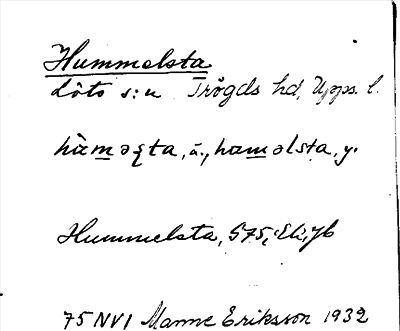 Hummelsta
Löts s:n Trögds hd, Upps. l.
hàməʈta, ä., haməlsta, y.
Hummelsta, 575, Eli, Jb
75 NV1 Manne Eriksson 1932